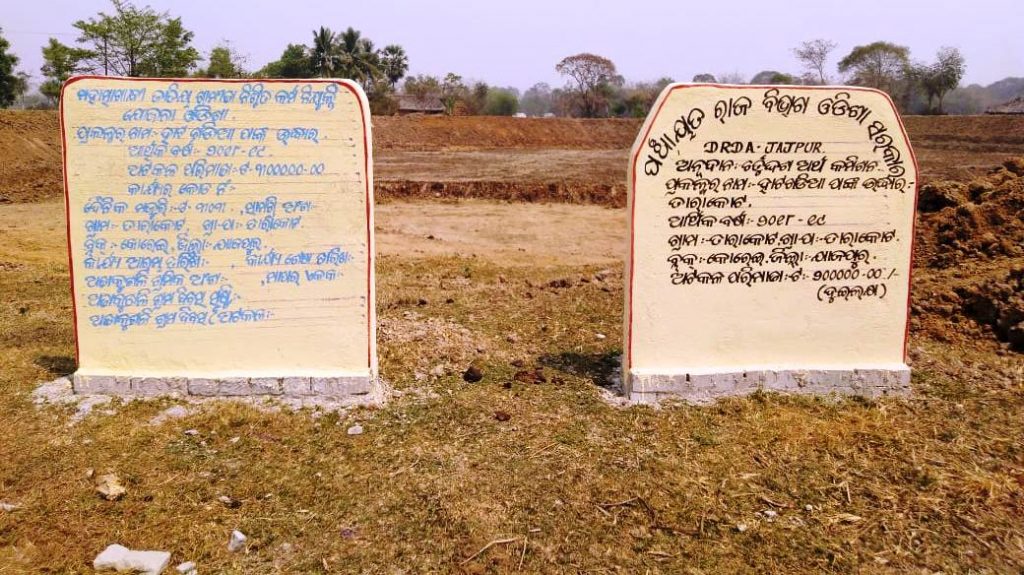 ମହାତ୍ମାଗାନ୍ଧୀ ଜାତୀୟ ଗ୍ରାମୀଣ ନିଶ୍ଚିତ କର୍ମ ନିଯୁକ୍ତି
ଯୋଜନା ଓଡିଶା
ପ୍ରକଳ୍ପର ନାମ:- ହାଟ ଗଡିଆ ପଙ୍କ ଉଦ୍ଧାର
ଆର୍ଥିକ ବର୍ଷ:- ୨୦୧୮-୧୯
ଅଟକଳ ପରିମାଣ:-ଟ-୩୦୦୦୦୦.୦୦
କାର୍ଯ୍ୟର କୋଡ ନଂ-
ଦୈନିକ ମଜୁରୀ:-ଟ , ସାମଗ୍ରୀ ଅଂଶ:-
ଗ୍ରାମ:- ତାରାକୋଟ, ଗ୍ରା.ପ:- ତାରାକୋଟ
ବ୍ଲକ:- କୋରେଇ, ଜିଲ୍ଲା:- ଯାଜପୁର
କାର୍ଯ୍ୟ ଆରମ୍ଭ ତାରିଖ:- , କାର୍ଯ୍ୟ ଶେଷ ତାରିଖ:-
ଅଦାକୁଶଳି ଶ୍ରମିକ ଅଂଶ:-
ଅଦାକୁଶଳି ଶ୍ରମ ଦିବସ ସୃଷ୍ଟି:-
ଅଦାକୁଶଳି ଶ୍ରମ ଦିବସ (ଅଟକଳ:-
ପଞ୍ଚାୟତ ରାଜ ବିଭାଗ ଓଡିଶା ସରକାର
DRDA-JAJPUR.
ଅନୁଦାନ:- ଚର୍ତୁଦ୍ଦଶ ଅର୍ଥ କମିଶନ
ପ୍ରକଳ୍ପର ନାମ:- ହାଟଗଡିଆ ପଙ୍କ ଉଦ୍ଧାର,
ତାରାକୋଟ,
ଆର୍ଥିକ ବର୍ଷ:- ୨୦୧୮-୧୯
ଗ୍ରାମ:-ତାରାକୋଟ,ଗ୍ରା.ପ:-ତାରାକୋଟ,
ବ୍ଲକ:- କୋରେଇ, ଜିଲ୍ଲା:-ଯାଜପୁର,
ଅଟକଳ ପରିମାଣ:-ଟ: ୨୦୦୦୦୦.୦୦/-
(ଦୁଇଲକ୍ଷ)